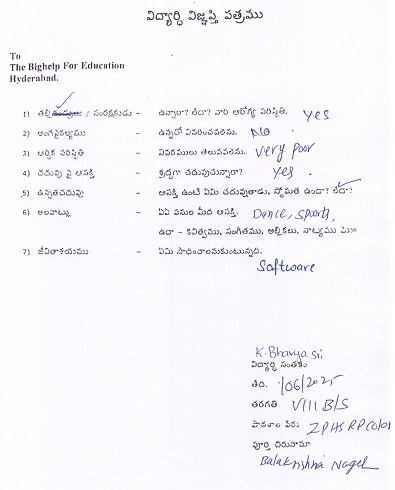 విద్యార్ధి విజ్ఞప్తి పత్రము
To
The Bighelp For Education
Hyderabad.
1) తల్లి / సంరక్షకుడు - ఉన్నారా? లేదా? వారి ఆరోగ్య పరిస్థితి. Yes
2) అంగవైకల్యము - ఉన్నచో వివరించవలెను. No
3) ఆర్ధిక పరిస్థితి - వివరములు తెలుపవలెను. Very poor
4) చదువు పై ఆసక్తి - శ్రద్ధగా చదువుచున్నారా? Yes.
5) ఉన్నతచదువు - ఆసక్తి ఉంటే ఏమి చదువుతాడు, స్తోమత ఉందా? లేదా?
6) అలవాట్లు - ఏఏ పనుల మీద ఆసక్తి. Dance, sports,
ఉదా - కవిత్వము, సంగీతము, అల్లికలు, నాట్యము
7) జీవితాశయము - ఏమి సాధించాలనుకుంటున్నది.
Software
K. Bhavya Sri
విద్యార్ధి సంతకం
తేది. /06/2025
తరగతి VIII B/S
పాఠశాల పేరు ZPHS RP Colon
పూర్తి చిరునామా
Balakrishna Nager